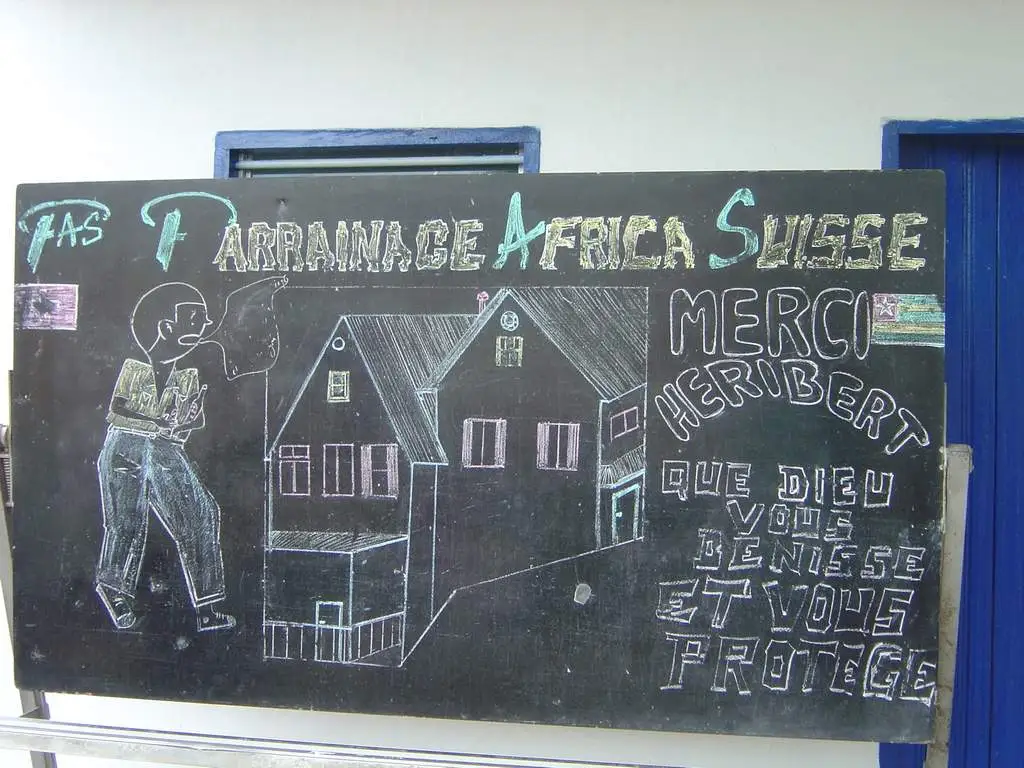 PAS PARRAINAGE AFRICA SUISSE
MERCI
HERIBERT
QUE DIEU
VOUS
BENISSE
ET VOUS
PROTEGE